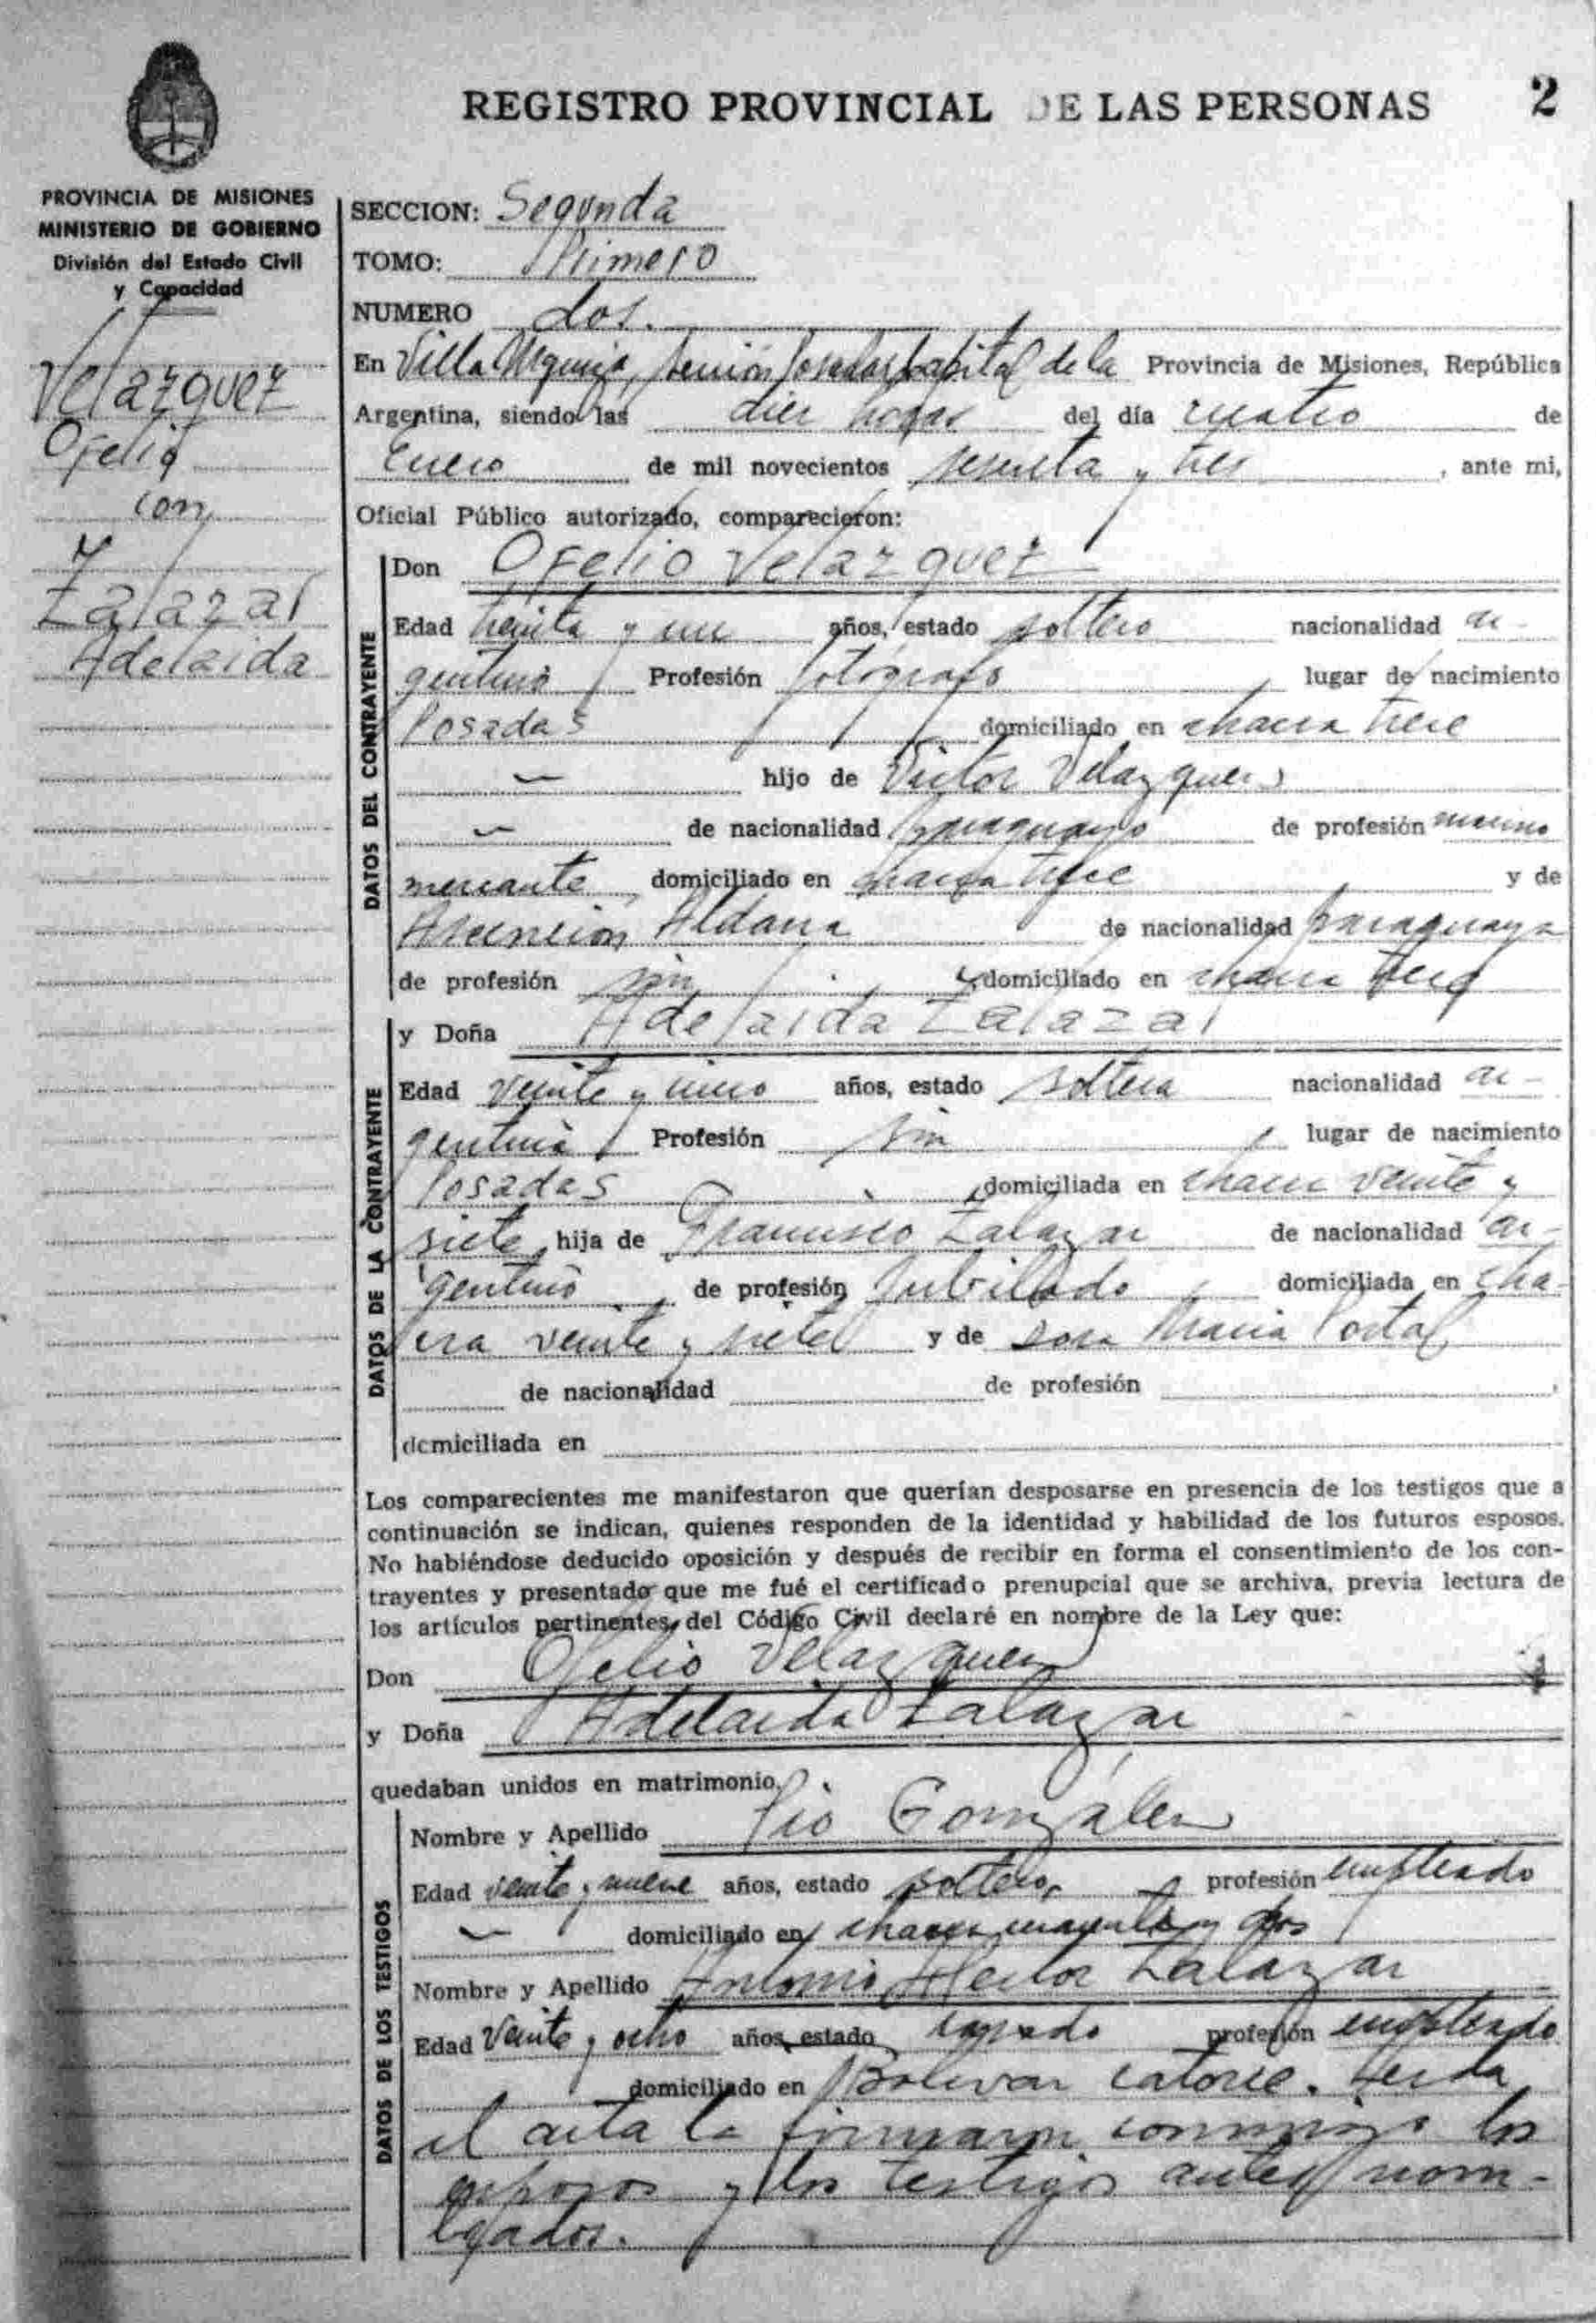 REGISTRO PROVINCIAL DE LAS PERSONAS
2
PROVINCIA DE MISIONES
MINISTERIO DE GOBIERNO
División del Estado Civil
y Capacidad
Velazquez
Ofelio
con
Zalazar
Adelaida
SECCION: Segunda
TOMO: Primero
NUMERO dos.
En Villa Urquiza, Posadas capital de la Provincia de Misiones, República
Argentina, siendo las diez horas del día cuatro de
Enero de mil novecientos sesenta y tres, ante mi,
Oficial Público autorizado, comparecieron:
DATOS DEL CONTRAYENTE
Don Ofelio Velazquez
Edad treinta y un años, estado soltero nacionalidad ar-
gentino Profesión fotógrafo lugar de nacimiento
Posadas domiciliado en chacra trece
hijo de Victor Velazquez
de nacionalidad paraguayo de profesión marino
mercante domiciliado en chacra trece y de
Asención Aldana de nacionalidad paraguaya
de profesión sin domiciliado en chacra trece
DATOS DE LA CONTRAYENTE
y Doña Adelaida Zalazar
Edad veinte y cinco años, estado soltera nacionalidad ar-
gentina Profesión sin lugar de nacimiento
Posadas domiciliada en chacra veinte y
siete, hija de Francisco Zalazar de nacionalidad ar-
gentino de profesión Jubilado domiciliada en cha-
cra veinte y siete y de Rosa Maria Portal
de nacionalidad de profesión ,
domiciliada en
Los comparecientes me manifestaron que querían desposarse en presencia de los testigos que a
continuación se indican, quienes responden de la identidad y habilidad de los futuros esposos.
No habiéndose deducido oposición y después de recibir en forma el consentimiento de los con-
trayentes y presentado que me fué el certificado prenupcial que se archiva, previa lectura de
los artículos pertinentes del Código Civil declaré en nombre de la Ley que:
Don Ofelio Velazquez
y Doña Adelaida Zalazar
quedaban unidos en matrimonio.
DATOS DE LOS TESTIGOS
Nombre y Apellido Pio González
Edad veinte y nueve años, estado soltero, profesión empleado
domiciliado en chacra cuarenta y dos
Nombre y Apellido Antonio Hector Zalazar
Edad veinte y ocho años, estado casado profesión empleado
domiciliado en Bolivar catorce. Leida
el acta la firmaron conmigo los
esposos y los testigos antes nom-
brados.